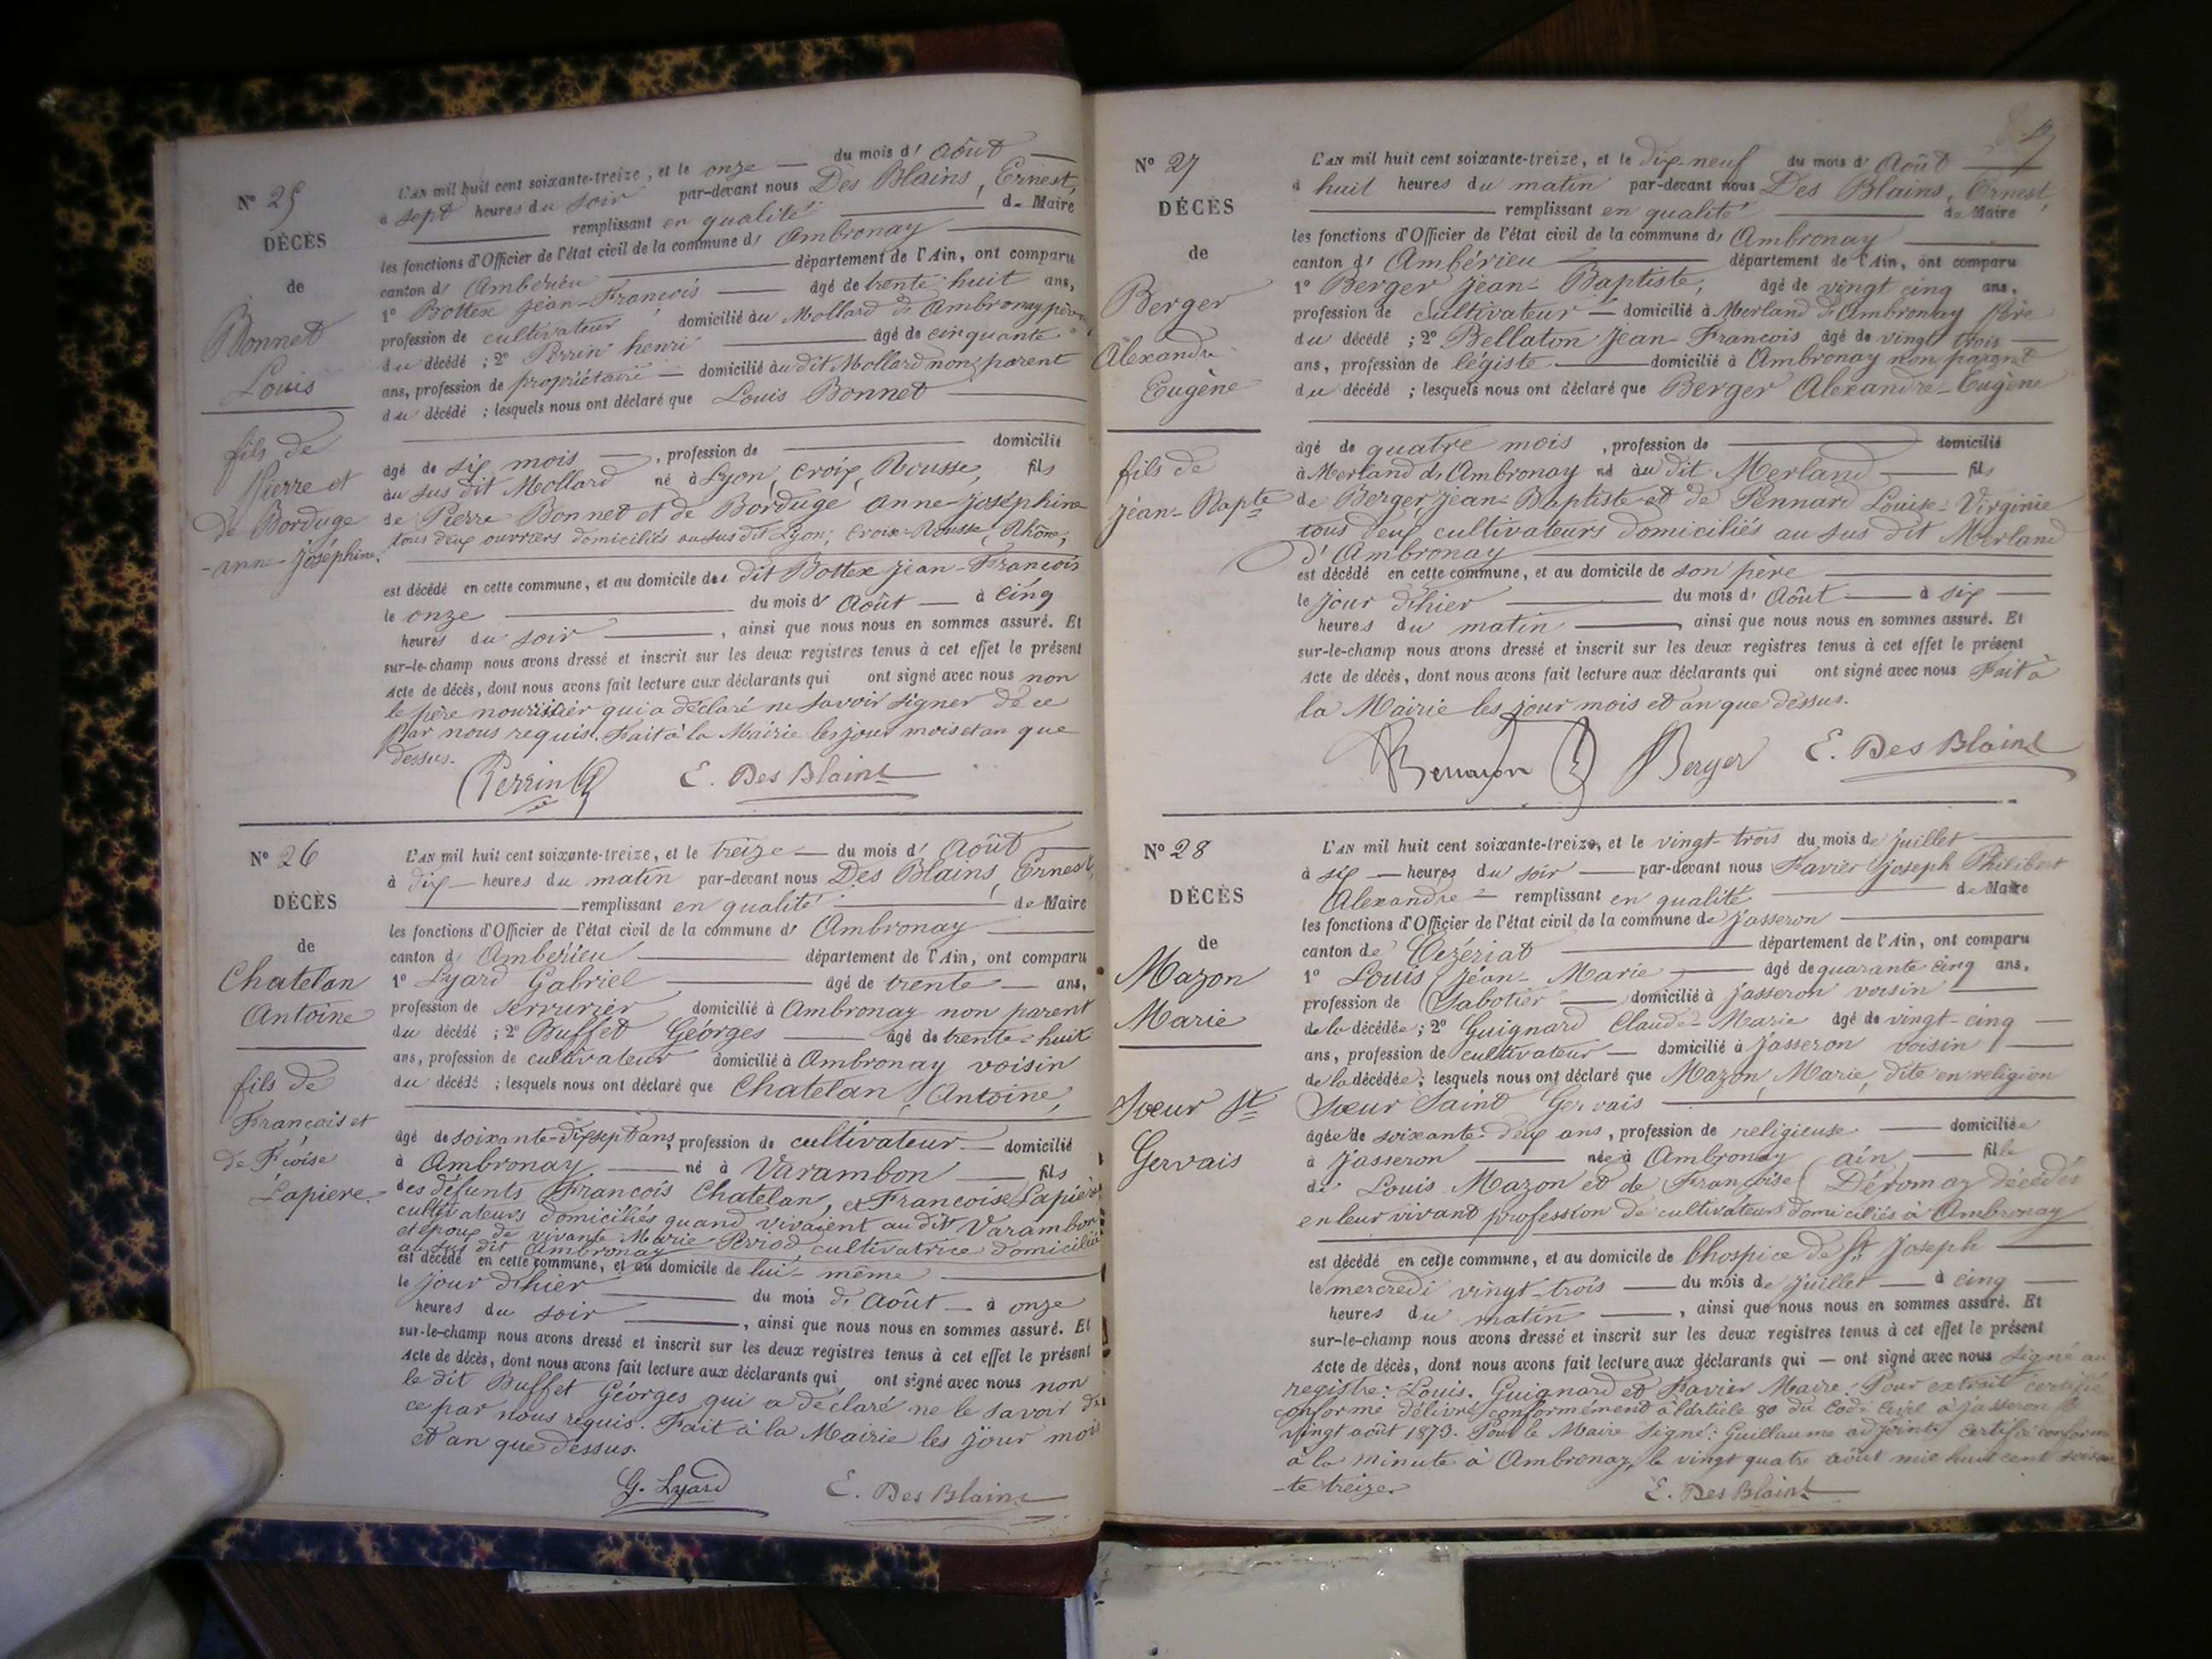 N° 25
DÉCÈS
de
Bonnet
Louis
fils de
Pierre et
de Borduge
-anne-Joséphine.
L'AN mil huit cent soixante-treize, et le onze — du mois d' Août —
à sept heures du soir par-devant nous Des Blains, Ernest,
remplissant en qualité de Maire
les fonctions d'Officier de l'état civil de la commune d' Ambronay
canton d' Ambérieu département de l'Ain, ont comparu
1° Bottex Jean-François âgé de trente-huit ans,
profession de cultivateur domicilié au Mollard d'Ambronay
du décédé ; 2° Perrin henri âgé de cinquante
ans, profession de propriétaire — domicilié au dit Mollard non parent
du décédé ; lesquels nous ont déclaré que Louis Bonnet
âgé de six mois —, profession de domicilié
au sus dit Mollard né à Lyon, Croix, Rousse, fils
de Pierre Bonnet et de Borduge anne-Joséphine
tous deux ouvriers domiciliés au sus dit Lyon, Croix-Rousse, (Rhône)
est décédé en cette commune, et au domicile du dit Bottex Jean-François
le onze du mois d' Août — à cinq
heures du soir , ainsi que nous nous en sommes assuré. Et
sur-le-champ nous avons dressé et inscrit sur les deux registres tenus à cet effet le présent
Acte de décès, dont nous avons fait lecture aux déclarants qui ont signé avec nous non
le père nourricier qui a déclaré ne savoir signer de ce
par nous requis. Fait à la Mairie les jour mois et an que
dessus.
Perrin E. Des Blains
N° 26
DÉCÈS
de
Chatelan
Antoine
fils de
François et
de Fçoise
Lapiere.
L'AN mil huit cent soixante-treize, et le treize — du mois d' Août
à dix — heures du matin par-devant nous Des Blains, Ernest,
remplissant en qualité de Maire
les fonctions d'Officier de l'état civil de la commune d' Ambronay
canton d' Ambérieu département de l'Ain, ont comparu
1° Lyard Gabriel âgé de trente — ans,
profession de serrurier domicilié à Ambronay non parent
du décédé ; 2° Buffet Géorges âgé de trente-huit
ans, profession de cultivateur domicilié à Ambronay voisin
du décédé ; lesquels nous ont déclaré que Chatelan Antoine,
âgé de soixante-dix sept ans, profession de cultivateur — domicilié
à Ambronay — né à Varambon — fils
des défunts François Chatelan, et Francoise Lapière
cultivateurs domiciliés quand vivaient au dit Varambon
et époux de vivante Marie Perriod, cultivatrice domiciliée
au sus dit Ambronay
est décédé en cette commune, et au domicile de lui-même
le jour d'hier du mois d' Août — à onze
heures du soir , ainsi que nous nous en sommes assuré. Et
sur-le-champ nous avons dressé et inscrit sur les deux registres tenus à cet effet le présent
Acte de décès, dont nous avons fait lecture aux déclarants qui ont signé avec nous non
le dit Buffet Géorges qui a déclaré ne le savoir de
ce par nous requis. Fait à la Mairie les jour mois
et an que dessus.
G. Lyard E. Des Blains
N° 27
DÉCÈS
de
Berger
Alexandre
Eugène
fils de
Jean-Bapte
L'AN mil huit cent soixante-treize, et le dix-neuf du mois d' Août
à huit heures du matin par-devant nous Des Blains, Ernest,
remplissant en qualité de Maire
les fonctions d'Officier de l'état civil de la commune d' Ambronay
canton d' Ambérieu département de l'Ain, ont comparu
1° Berger Jean-Baptiste, âgé de vingt cinq ans,
profession de cultivateur — domicilié à Merland d'Ambronay père
du décédé ; 2° Bellaton Jean-François âgé de vingt trois
ans, profession de légiste domicilié à Ambronay non parent
du décédé ; lesquels nous ont déclaré que Berger Alexandre-Eugène
âgé de quatre mois , profession de domicilié
à Merland d'Ambronay né au dit Merland — fils
de Berger, Jean-Baptiste et de Pennard Louise-Virginie
tous deux cultivateurs domiciliés au sus dit Merland
d'Ambronay
est décédé en cette commune, et au domicile de son père
le jour d'hier du mois d' Août — à six
heures du matin , ainsi que nous nous en sommes assuré. Et
sur-le-champ nous avons dressé et inscrit sur les deux registres tenus à cet effet le présent
Acte de décès, dont nous avons fait lecture aux déclarants qui ont signé avec nous Fait à
la Mairie les jour mois et an que dessus.
Berger E. Des Blains
N° 28
DÉCÈS
de
Mazon
Marie
Soeur St
Gervais
L'AN mil huit cent soixante-treize, et le vingt-trois du mois de Juillet
à six — heures du soir — par-devant nous Favier Joseph Philibert
Alexandre — remplissant en qualité de Maire
les fonctions d'Officier de l'état civil de la commune de Jasseron
canton de Cezériat département de l'Ain, ont comparu
1° Louis Jean-Marie âgé de quarante cinq ans,
profession de Sabotier — domicilié à Jasseron voisin
de la décédée ; 2° Guignard Claude-Marie âgé de vingt-cinq
ans, profession de cultivateur — domicilié à Jasseron voisin
de la décédée ; lesquels nous ont déclaré que Mazon, Marie, dite en religion
Soeur Saint Gervais
âgée de soixante-deux ans, profession de religieuse — domiciliée
à Jasseron née à Ambronay (ain) — fille
de Louis Mazon et de Françoise Déromaz décédés
en leur vivant profession de cultivateurs domiciliés à Ambronay
est décédé en cette commune, et au domicile de l'hospice de St. Joseph
le mercredi vingt-trois — du mois de Juillet — à cinq
heures du matin , ainsi que nous nous en sommes assuré. Et
sur-le-champ nous avons dressé et inscrit sur les deux registres tenus à cet effet le présent
Acte de décès, dont nous avons fait lecture aux déclarants qui — ont signé avec nous Signé au
registre: Louis. Guignard et Favier Maire. Pour extrait certifié
conforme délivré conformément à l'article 80 du Code Civil à Jasseron le
vingt août 1873. Pour le Maire Signé: Guillaume adjoint. Certifié conforme
à la minute à Ambronay, le vingt quatre août mil huit cent soixan
-te treize.
E. Des Blains